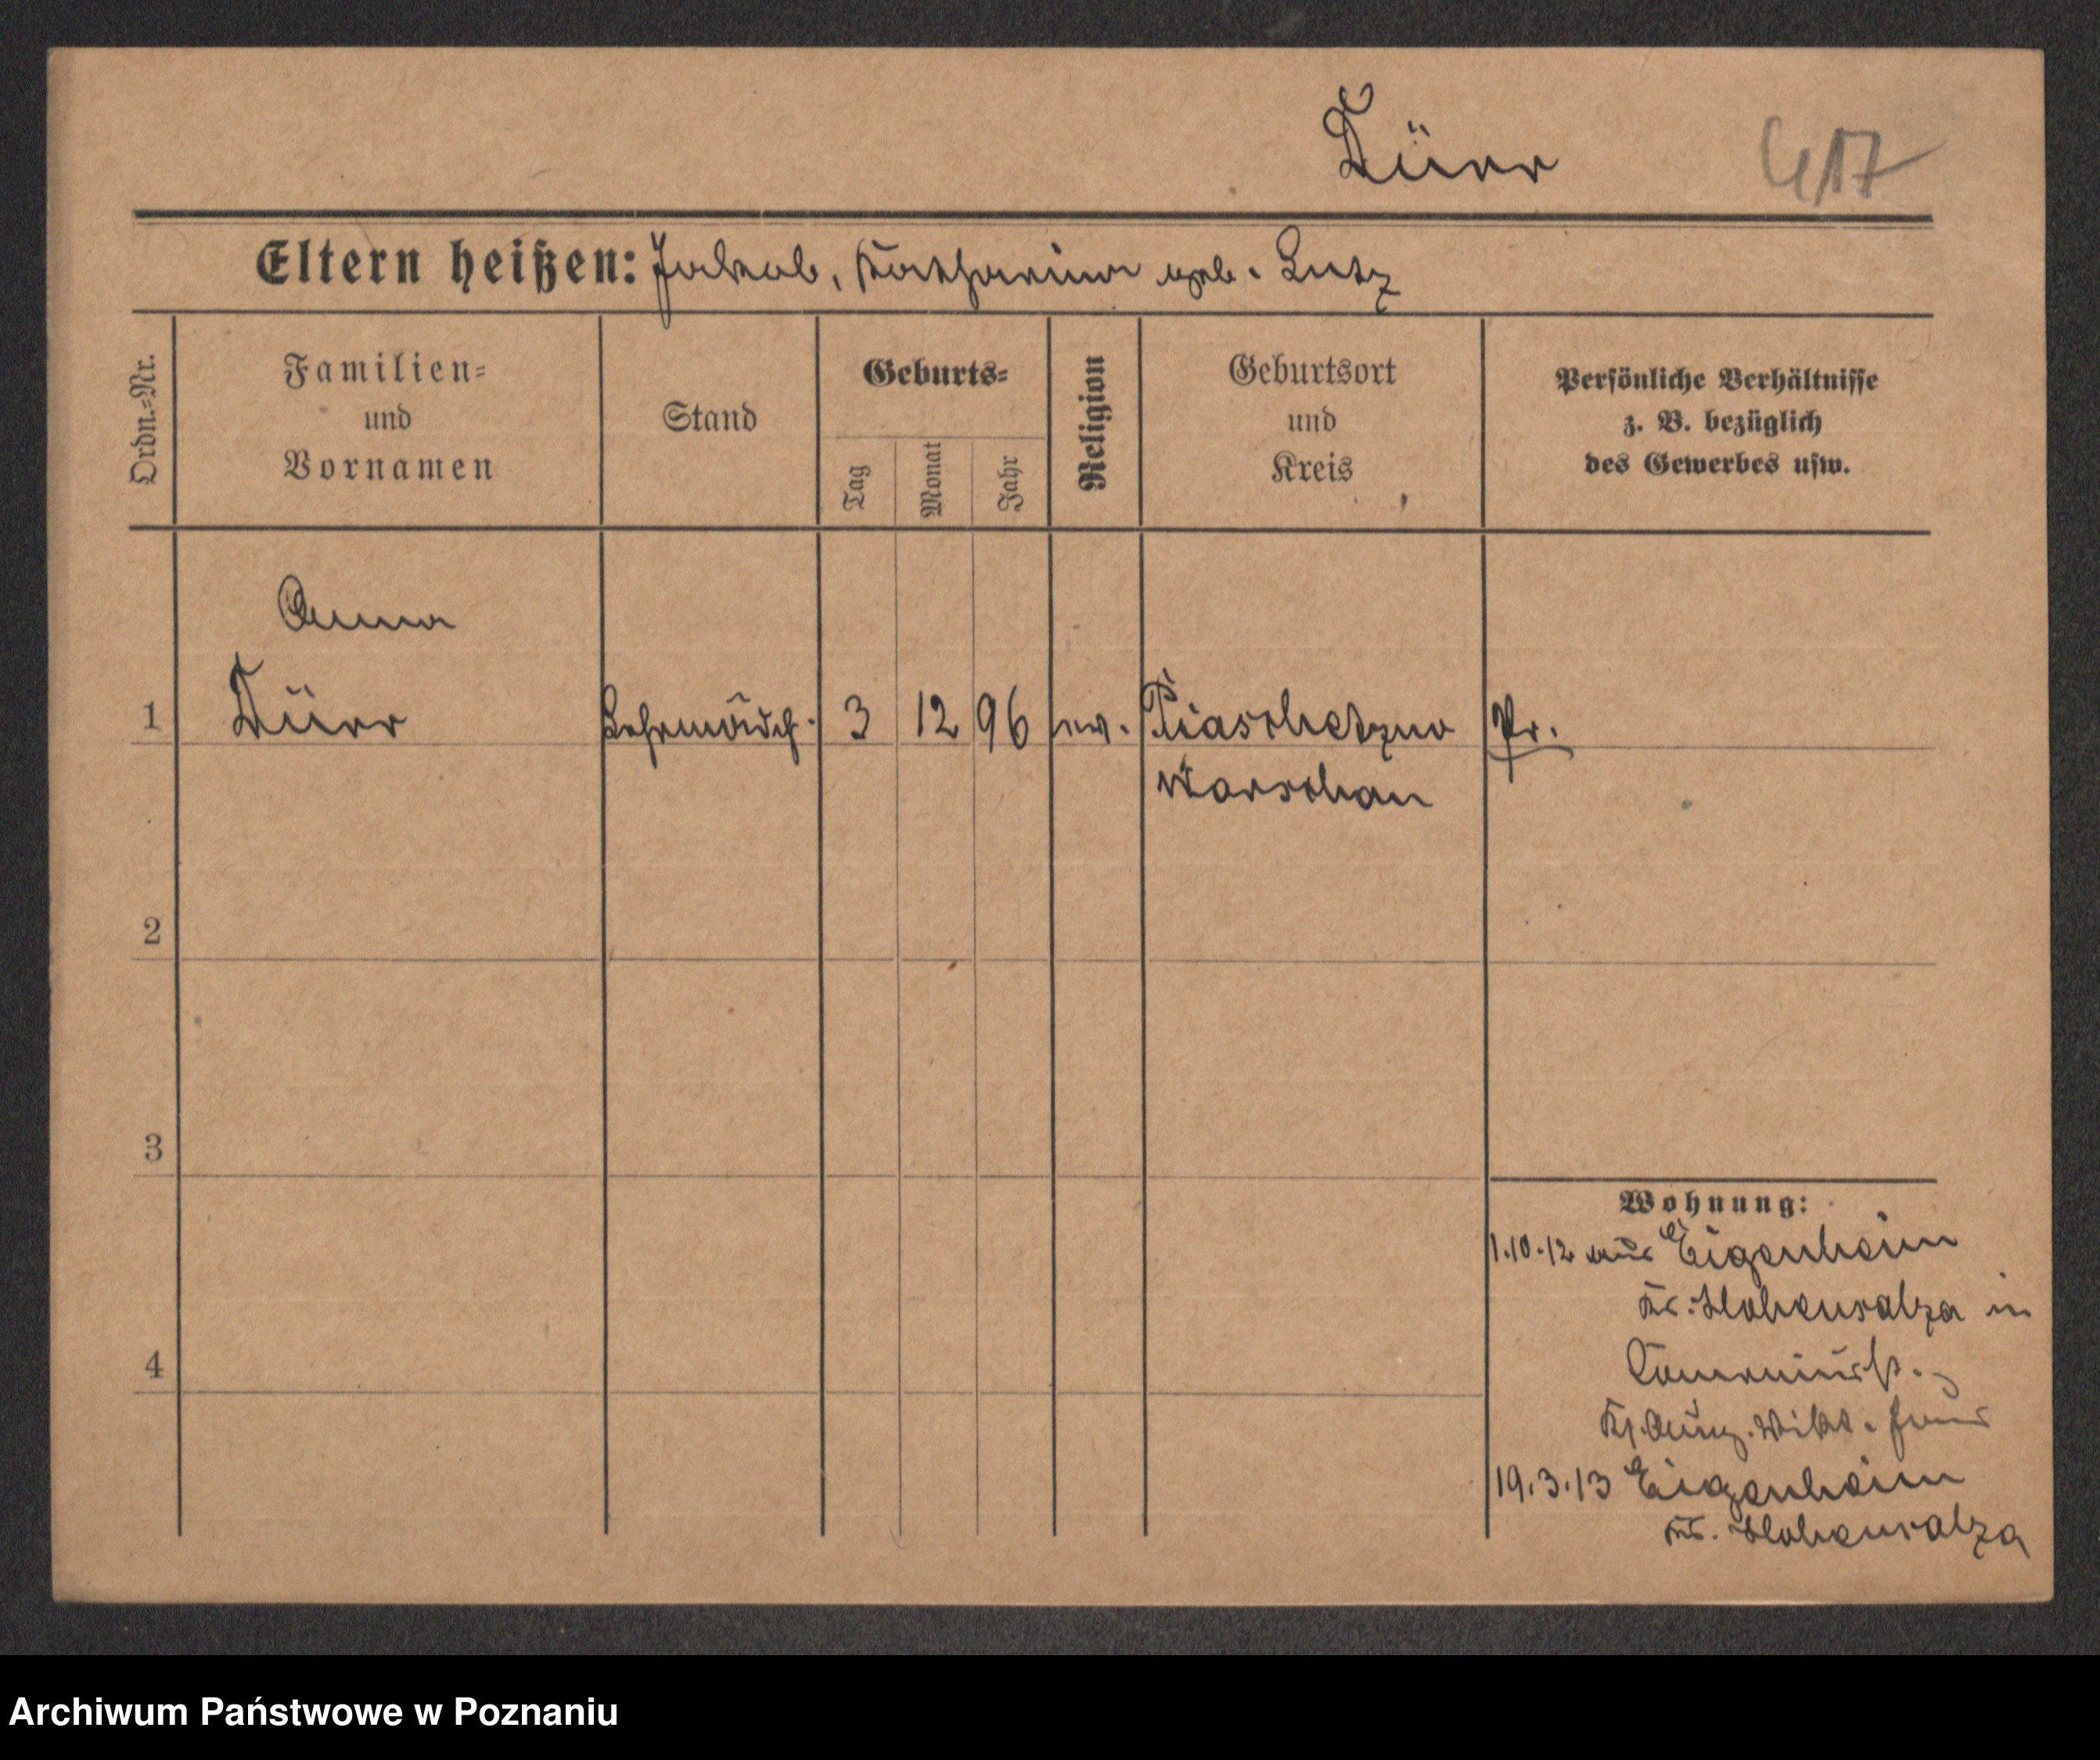 Dürr 417
Eltern heißen: Jakob, Katharina geb. Lutz
Ordn.-Nr.
Familien-
und
Vornamen
Stand
Geburts-
Tag
Monat
Jahr
Religion
Geburtsort
und
Kreis
Persönliche Verhältnisse
z. B. bezüglich
des Gewerbes usw.
Anna
1 Dürr Lehrmädch. 3 12 96 ev. Piaschetzno Pr.
Warschau
2
3
Wohnung:
1.10.12 aus Eigenheim
Kr. Hohensalza in
4
19.3.13 Eigenheim
Kr. Hohensalza
Archiwum Państwowe w Poznaniu